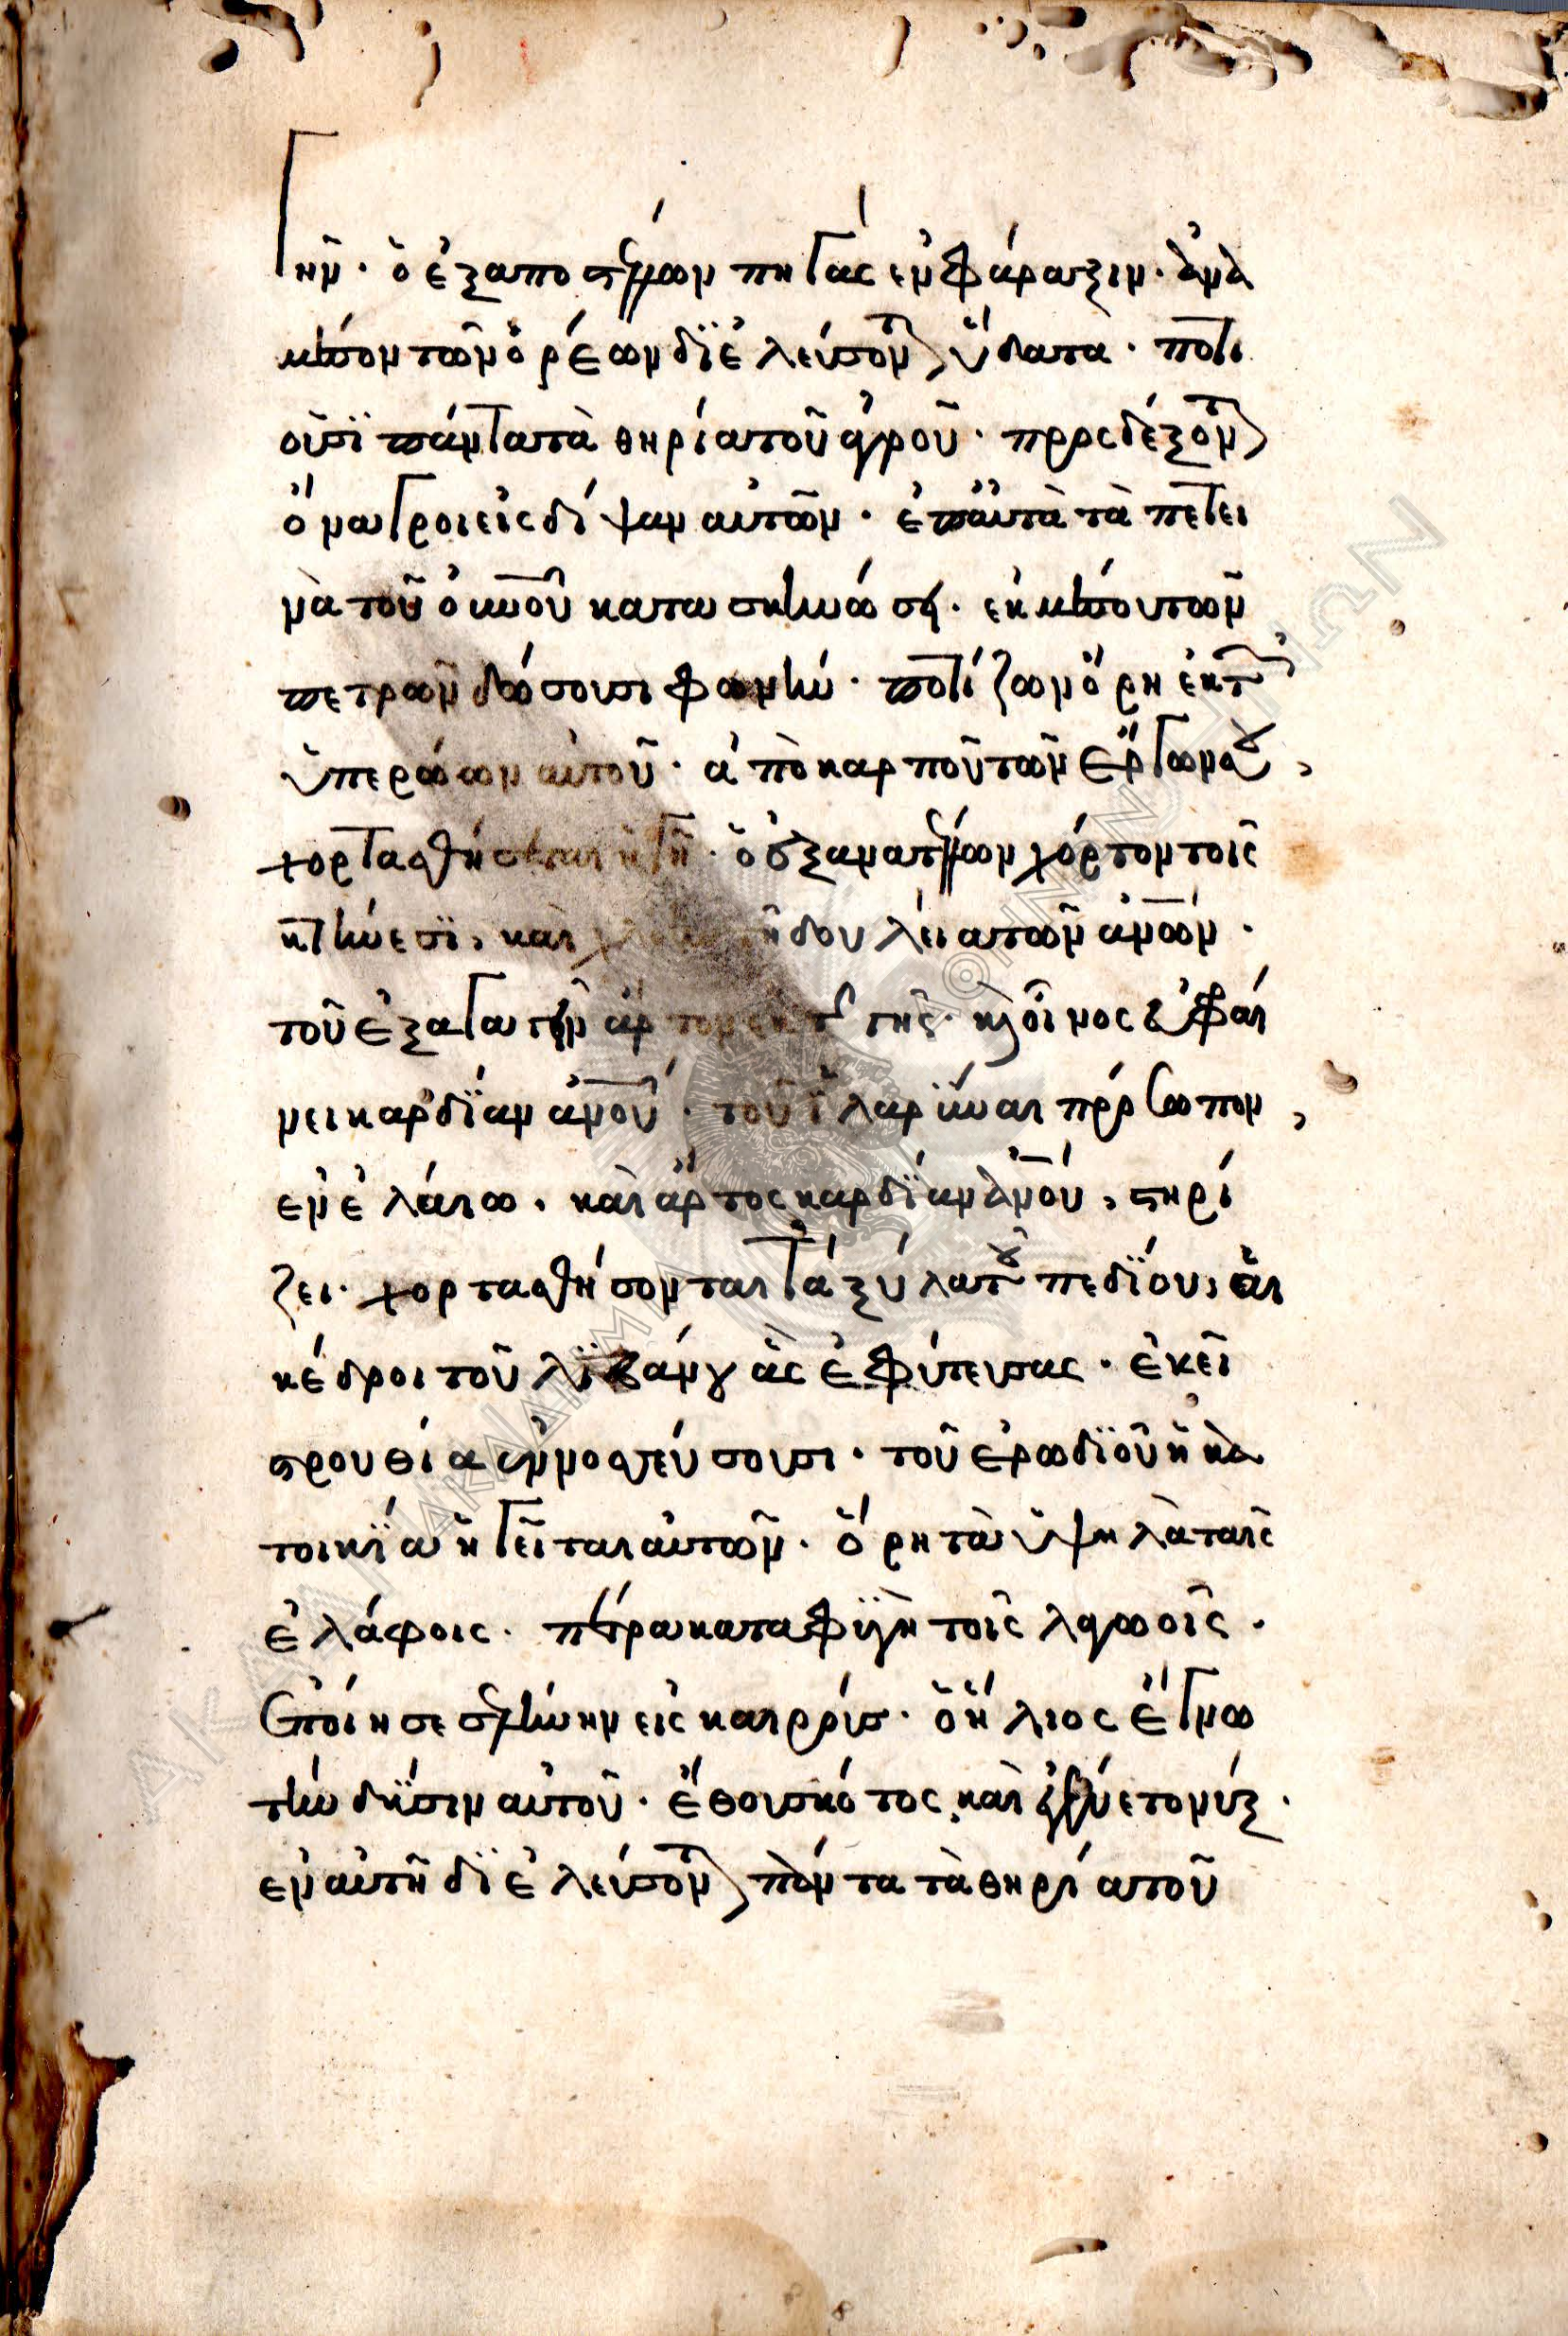 γῆν· ὁ ἐξαποστέλλων πηγὰς ἐν φάραγξιν· ἀνὰ
μέσον τῶν ὀρέων διελεύσονται ὕδατα· ποτι
οῦσι πάντα τὰ θηρία τοῦ ἀγροῦ· προσδέξονται
ὄναγροι εἰς δίψαν αὐτῶν· ἐπ' αὐτὰ τὰ πετει
νὰ τοῦ οὐνοῦ κατασκηνώσει· ἐκ μέσου τῶν
πετρῶν δώσουσι φωνήν· ποτίζων ὄρη ἐκ τῶν
ὑπερώων αὐτοῦ· ἀπὸ καρποῦ τῶν ἔργων σου,
χορτασθήσεται ἡ γῆ· ὁ ἐξανατέλλων χόρτον τοῖς
κτήνεσι, καὶ χλόην τῇ δουλεία τῶν ἀνῶν·
τοῦ ἐξαγαγεῖν ἄρτον ἐκ τῆς γῆς· καὶ οἶνος εὐφραί
νει καρδίαν ἀνου· τοῦ ἱλαρῦναι πρόσωπον,
ἐν ἐλαίω· καὶ ἄρτος καρδίαν ἀνου, στηρί
ζει· χορτασθήσονται τὰ ξύλα τοῦ πεδίου, αἱ
κέδροι τοῦ λιβάνου ἃς ἐφύτευσας· ἐκεῖ
στρουθία ἐννοσσεύσουσι· τοῦ ἐρωδιοῦ ἡ κα
τοικία ἡγεῖται αὐτῶν· ὄρη τὰ ὑψηλὰ ταῖς
ἐλάφοις· πέτρα καταφυγὴ τοῖς λαγωοῖς·
Ἐποίησε σελήνην εἰς καιρούς· ὁ ἥλιος ἔγνω
τὴν δύσιν αὐτοῦ· ἔθου σκότος καὶ ἐγένετο νύξ·
ἐν αὐτῇ διελεύσονται πάντα τὰ θηρία τοῦ